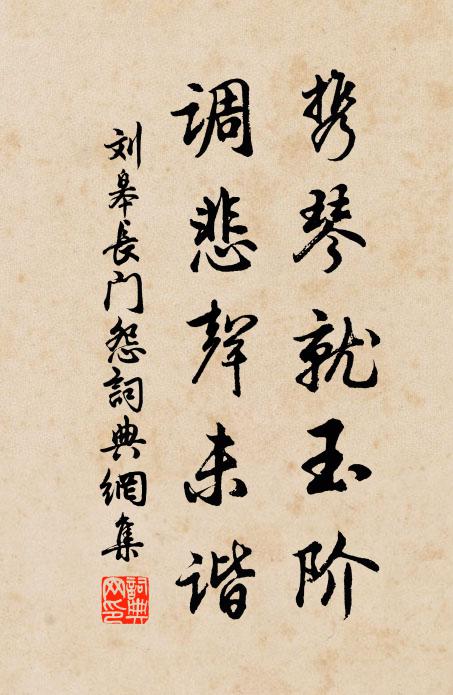 携琴就玉阶
调悲聲未谐
刘皋長门怨詞典網集
詞典网印